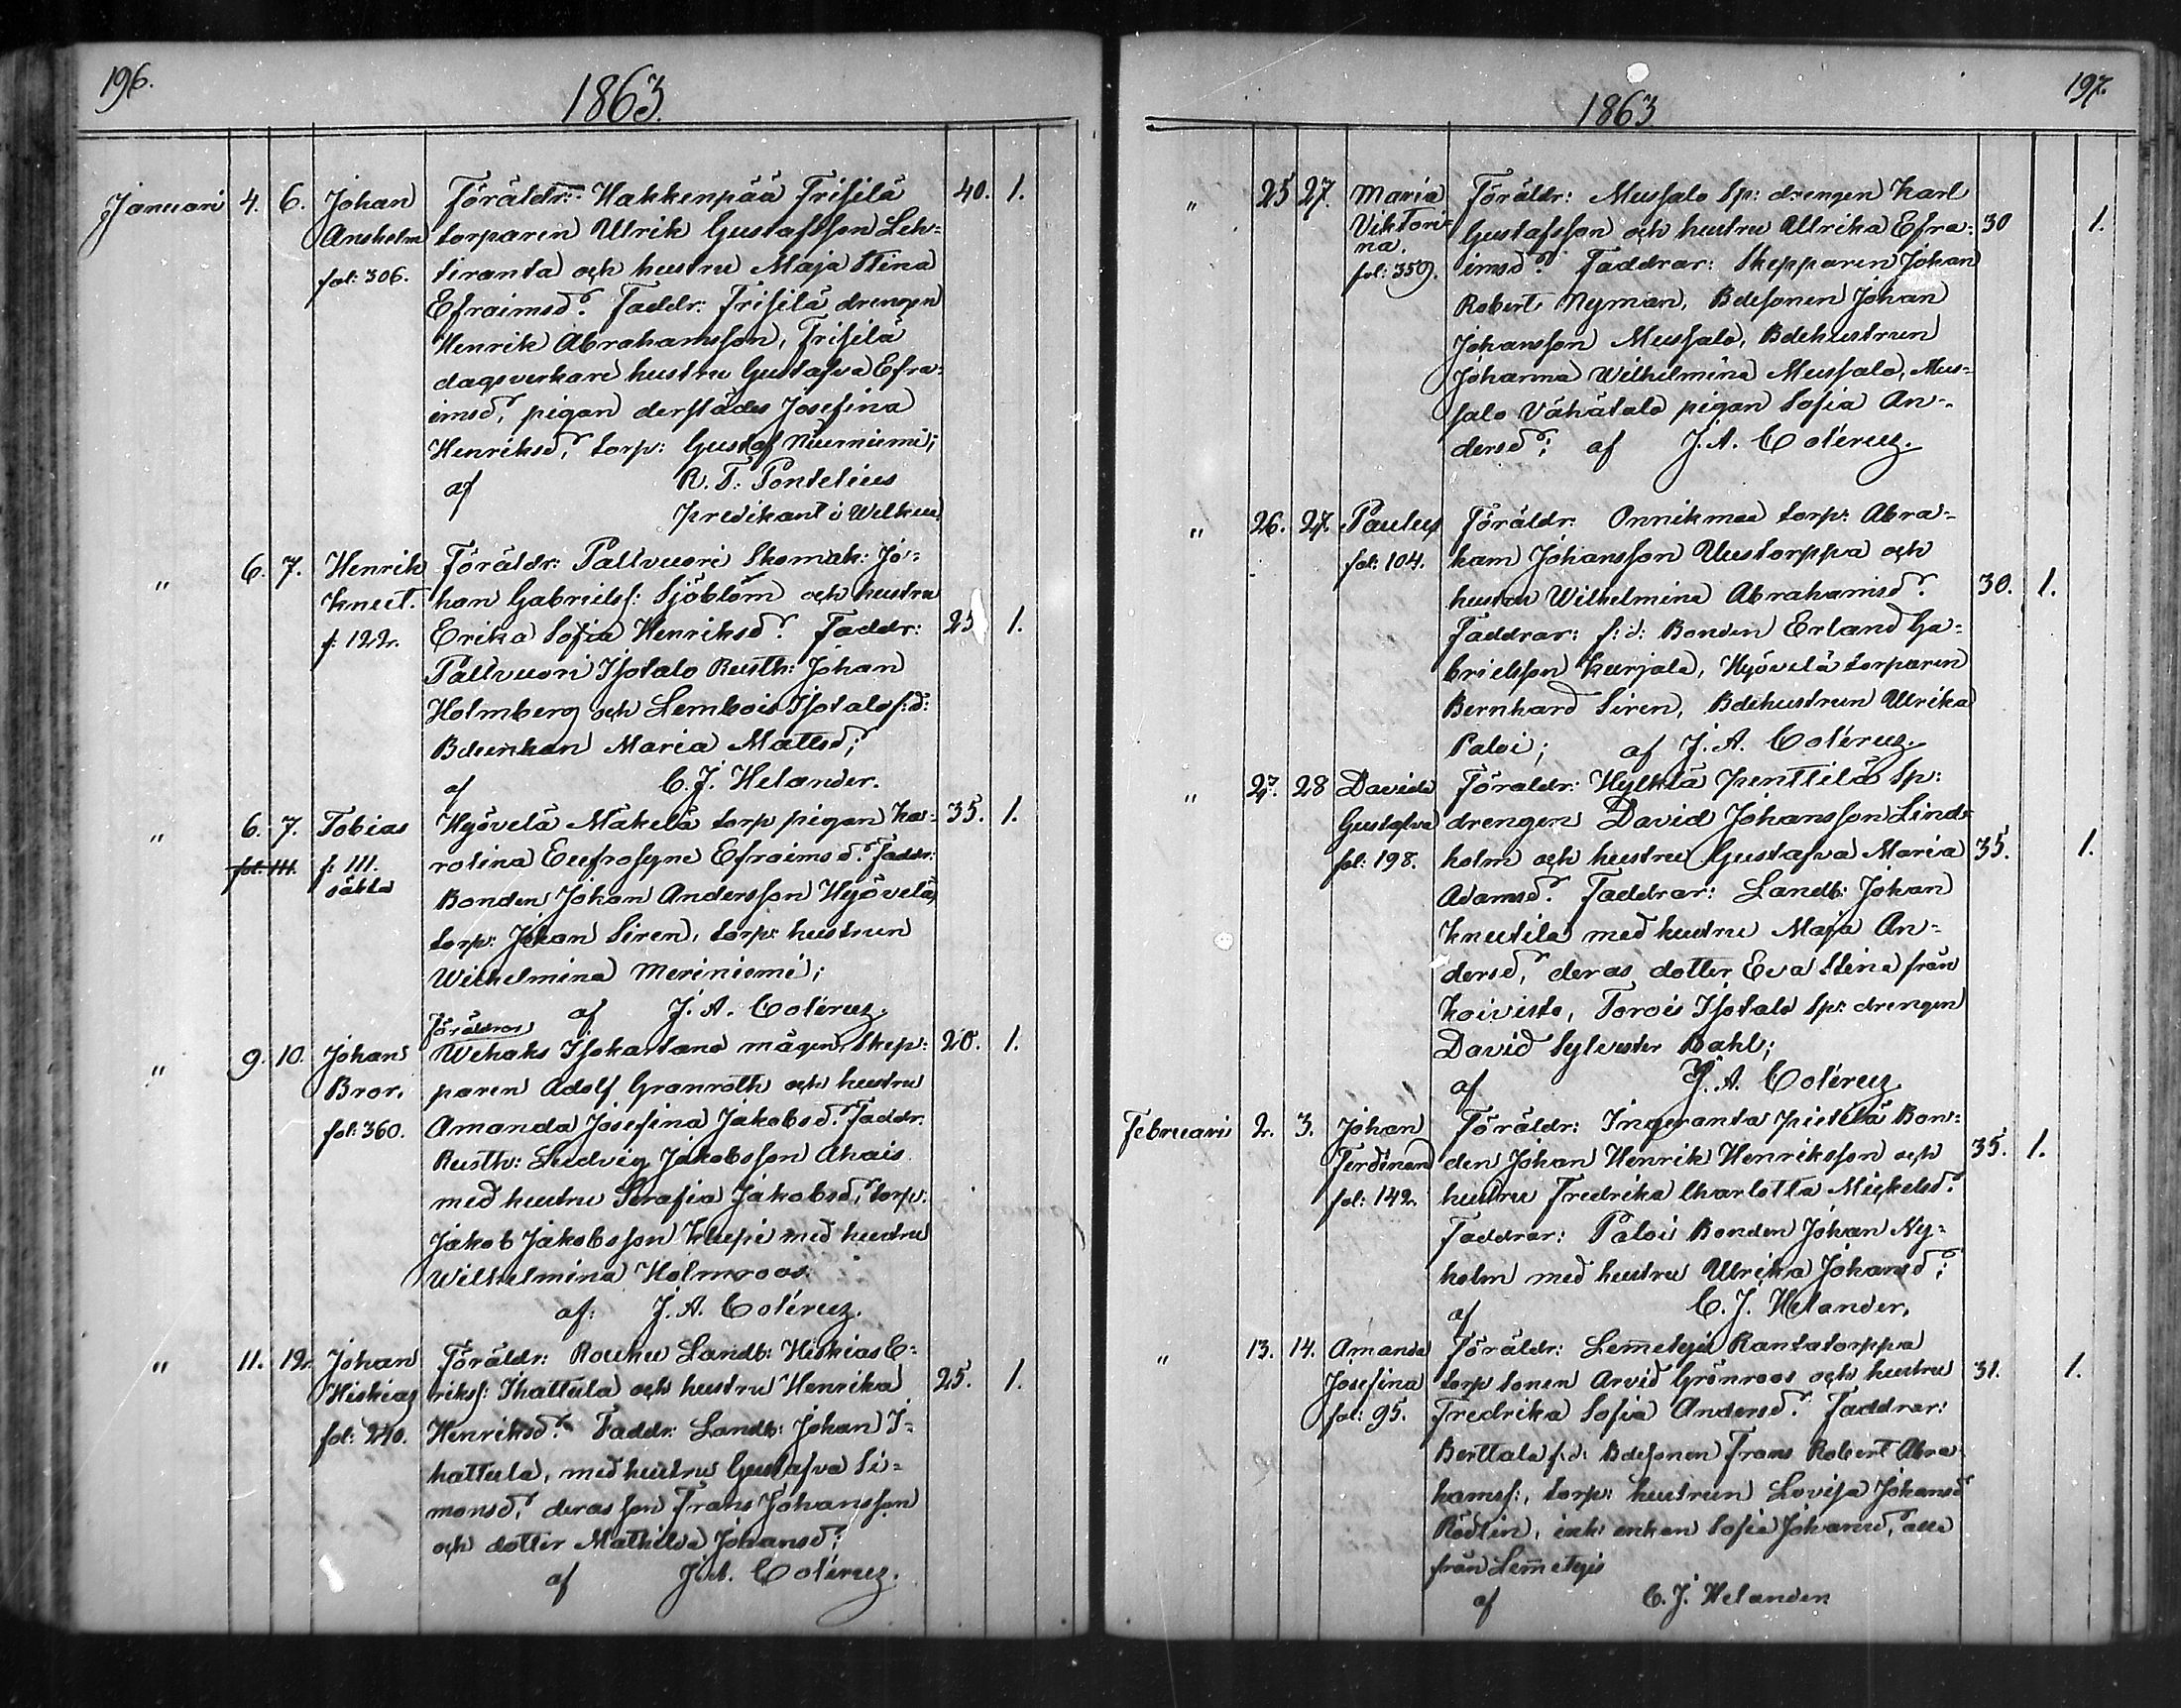 196.
1863.
Januari 4. 6. Johan Föräldr: Hakkenpää Frisilä 40. 1.
Anshelm torparen Ulrik Gustafsson Leh-
fol: 306. tiranta och hustru Maja Stina
Efraimsd:r Faddr: Frisilä drengen
Henrik Abrahamsson, Frisilä
dagsverkare hustru Gustafva Efra-
imsd:r, pigan derstädes Josefina
Henriksd:r, torp: Gustaf Niuniemi;
af R. F. Pontelius
predikant i Welkua
" 6. 7. Henrik Föräldr: Pallvuori Skomak: Jo-
Knut. han Gabrielss: Sjöblom och hustru
f: 122. Erika Sofia Henriksd:r Faddr: 25 1.
Pallvuori Isotalo Rusth: Johan
Holmberg och Lembois Isotalo f:d:
Bdeenkan Maria Mattsd:r;
af C. J. Helander.
" 6. 7. Tobias Hyövelä Mäkelä torp pigan Ka- 35. 1.
fol: 111. f: 111. rolina Eufrosyne Efraimsd:r Faddr:
oäkta Bonden Johan Andersson Hyövelä,
torp: Johan Siren, torp: hustrun
Wilhelmina Meriniemi;
af J. A. Coléruz.
Föräldrar
" 9. 10. Johan Wehaks Isokartano mågen, Skep- 20. 1.
Bror. paren Adolf Granroth och hustru
fol: 360. Amanda Josefina Jakobsd:r Faddr:
Rusth: Ludvig Jakobsson Ahais
med hustru Serafia Jakobsd:r, torp:
Jakob Jakobsson Kuupi med hustru
Wilhelmina Holmroos
af: J. A. Coléruz.
" 11. 12. Johan Föräldr: Rouhu Landb: Hiskias E-
Hiskias rikss: Ihattula och hustru Henrika 25. 1.
fol: 240. Henriksd:r Faddr: Landb: Johan I-
hattula, med hustru Gustafva Si-
monsd:r, deras son Frans Johansson
och dotter Mathilda Johansd:r;
af J. A. Coléruz.
197.
1863
" 25 27. Maria Föräldr: Mussalo Sp: drengen Karl
Viktori- Gustafsson och hustru Ulrika Efra- 30 1.
na.
fol: 359. imsd:r Faddrar: Skepparen Johan
Robert Nyman, Bdesonen Johan
Johansson Mussalo, Bdehustrun
Johanna Wilhelmina Mussalo, Mus-
salo Vähätalo pigan Sofia An-
dersd:r; af J. A. Coléruz.
" 26. 27. Paulus Föräldr: Onnikmaa torp: Abra-
fol: 104. ham Johansson Uustorppa och
hustru Wilhelmina Abrahamsd:r 30. 1.
Faddrar: f: d: Bonden Erland Ga-
brielsson Kurjala, Hyövelä torparen
Bernhard Siren, Bdehustrun Ulrika
Paloi; af J. A. Coléruz.
" 27. 28 Davida Föräldr: Hylkilä Penttilä Sp:
Gustafva drengen David Johansson Lind-
fol: 198. holm och hustru Gustafva Maria 35. 1.
Adamsd:r Faddrar: Landb: Johan
Knuutila med hustru Maja An-
dersd:r, deras dotter Eva Stina från
Koivisto, Torois Isotalo Sp: drengen
David Sylvester Dahl;
af J. A. Coléruz.
Februari 2. 3. Johan Föräldr: Ingeranta Pietilä Bon-
Ferdinan den Johan Henrik Henriksson och 35. 1.
fol: 142. hustru Fredrika Charlotta Mickelsd:r
Faddrar: Paloi Bonden Johan Ny-
holm med hustru Ulrika Johansd:r;
af C. J. Helander.
" 13. 14. Amanda Föräldr: Lemetyis Rantatorppa
Josefina torp sonen Arvid Grönroos och hustru 31. 1.
fol: 95. Fredrika Sofia Andersd:r Faddrar:
Berttala f: d: Bdesonen Frans Robert Abra-
hamss:, torp: hustrun Lovisa Johansd:r
Rödlin, inh: enkan Sofia Johansd:r, alla
från Lemetyis
af C. J. Helander